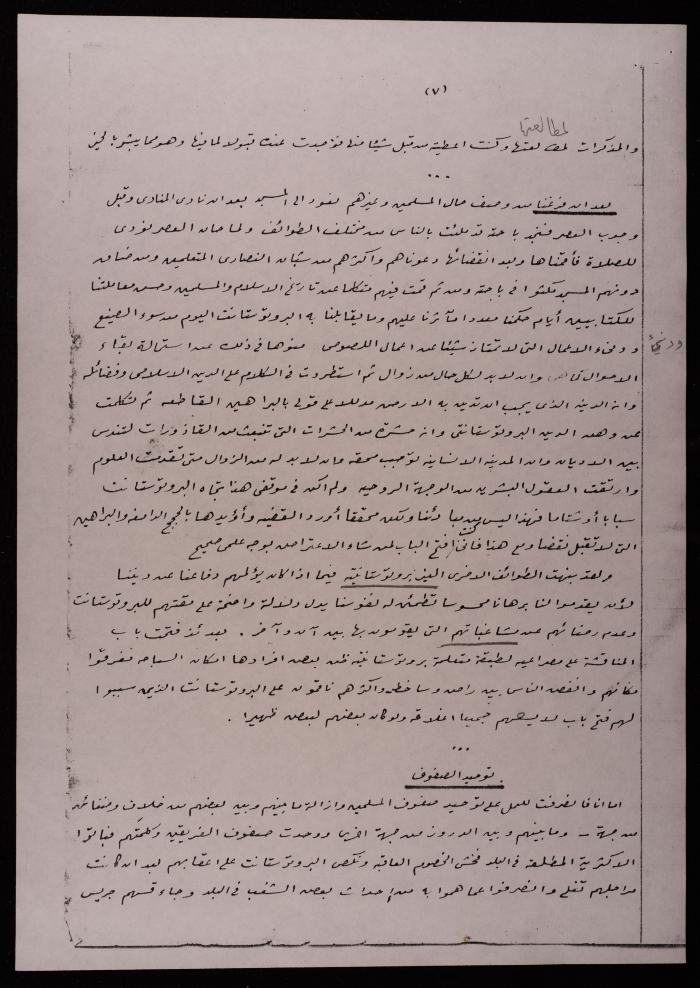 (٧)
لمطالعتها
والمذكرات لمطالعتها وكنت اعطيته من قبل شيئا منها فوجدت عنده قبولا لما فيها وهو مما يبشر بالخير
...
بعد ان فرغنا من وصف حال المسلمين وغيرهم لنعود الى المسجد بعد ان نادى المنادى وقبل
وجوب العصر فنجد باحته قد ملئت بالناس من مختلف الطوائف ولما حان العصر نودى
للصلاة فأقمناها وبعد انقضائها دعوناهم واكثرهم من شبان النصارى المتعلمين ومن ضاق
دونهم المسجد مكثوا في باحته ومن ثم قمت فيهم متكلما عن تاريخ الاسلام والمسلمين وحسن معاملتنا
للكتابيين أيام حكمنا معددا مآثرنا عليهم وما يقابلنا به البروتوستانت اليوم من سوء الصنيع
ودنيء الاعمال التى لا تمتاز شيئا عن اعمال اللصوص منوها فى ذلك عن استحالة بقاء
الاحوال كما هى وان لا بد لكل حال من زوال ثم استطردت فى الكلام على الدين الاسلامى وفضائله
وانه الدين الذى يجب ان تدين به الارض مدللا على قولى بالبراهين القاطعه ثم تكلمت
عن وهن الدين البروتوستانتى وانه حشرة من الحشرات التى تنبعث من القاذورات لتندس
بين الاديان وان المدنية الانسانية توجب سحقه وان لا بد له من الزوال متى تقدمت العلوم
وارتقت العقول البشرية من الوجهة الروحيه ولم اكن فى موقفى هذا تجاه البروتوستانت
سبابا أو شتاما فهذا ليس من دأبنا ولكن محققا أورد القضيه وأؤيدها بالحجج الدامغه والبراهين
التى لا تقبل نقضا ومع هذا فانى افتح الباب لمن شاء الاعتراض بوجه علمى صحيح
ولقد بينت الطوائف الاخرى الغير بروتوستانتية فيما اذا كان يؤلمهم دفاعنا عن ديننا
لأن يقدموا لنا برهانا محسوسا تطمئن له نفوسنا يدل دلالة واضحة على مقتهم للبروتوستانت
وعدم رضائهم عن مشاغباتهم التى يقومون بها بين آن وآخر . بعدئذ فتحت باب
المناقشة على مصراعيه لطبقة متعلمة بروتوستانتية ظن بعض افرادها امكان المساجله فغرقوا
مكانهم وانفض الناس بين راض وساخط واكثرهم ناقمون على البروتوستانت الذين سببوا
لهم فتح باب لا يسعهم جميعا اغلاقه ولو كان بعضهم لبعض ظهيرا .
...
توحيد الصفوف
اما انا فانصرفت للعمل على توحيد صفوف المسلمين وازالة ما بينهم وبين بعضهم من خلاف وضغائن
من جهة – وما بينهم وبين الدروز من جهة اخرى ووحدت صفوف الفريقين وكلمتهم فباتوا
الاكثرية المطلقة فى البلد فخشى الخصوم العاقبه ونكص البروتوستانت على اعقابهم بعد ان كانت
مراجلهم تغلى وانصرفوا عما هموا به من احداث بعض الشغب فى البلد وجاء قسهم جريس
ودنيء